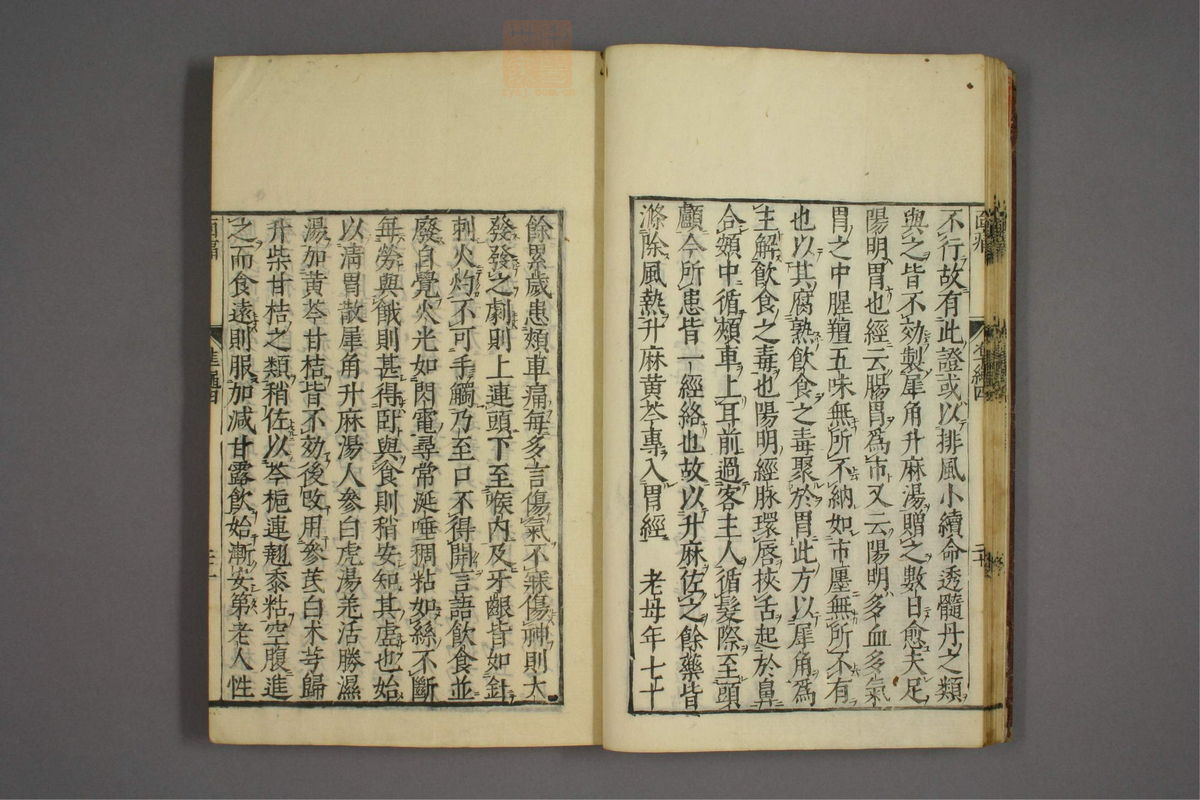 不行故有此證或以排風小續命透髓丹之類
與之皆不効製犀角升麻湯贈之數日愈夫足
陽明胃也經云腸胃爲市又云陽明多血多氣
胃之中腥羶五味無所不納如市廛無所不有
也以其腐熟飲食之毒聚於胃此方以犀角爲
主解飲食之毒也陽明經脉環唇挾舌起於鼻
合頞中循頰車上耳前過客主人循髮際至頭
顱今所患皆一經絡也故以升麻佐之餘藥皆
滌除風熱升麻黄芩專入胃經 老母年七十
餘累歲患頰車痛每多言傷氣不寐傷神則大
發發之劇則上連頭下至喉内及牙齦皆如針
刺火灼不可手觸乃至口不得開言語飲食並
廢自覺火光如閃電尋常涎唾稠粘如絲不斷
每勞與餓則甚得卧與食則稍安知其虚也始
以清胃散犀角升麻湯人參白虎湯羌活勝濕
湯加黄芩甘桔皆不効後改用參芪白术芎歸
升柴甘桔之類稍佐以芩梔連翹黍粘空腹進
之而食遠則服加減甘露飲始漸安第老人性